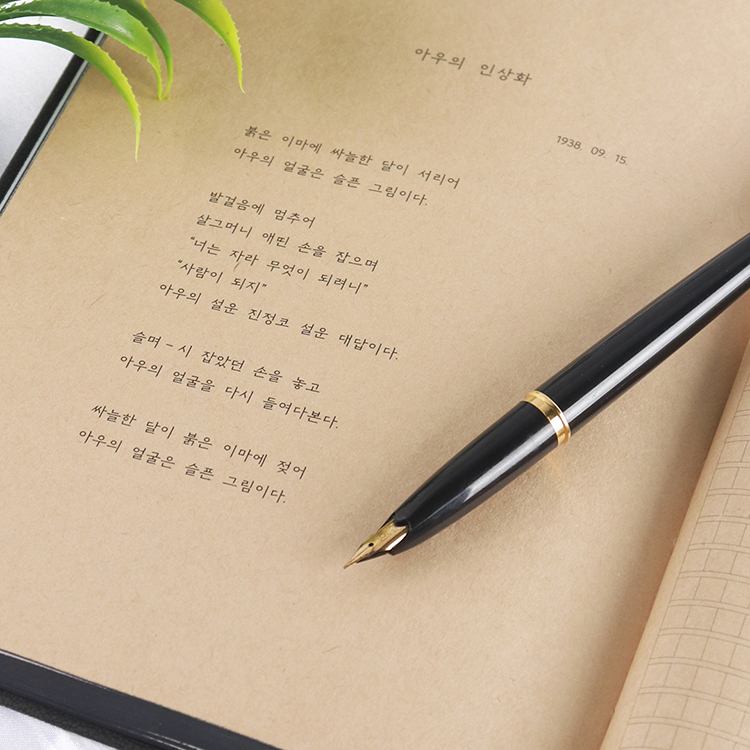 아우의 인상화
1938. 09. 15.
붉은 이마에 싸늘한 달이 서리어
아우의 얼굴은 슬픈 그림이다.
발걸음에 멈추어
살그머니 애띤 손을 잡으며
“너는 자라 무엇이 되려니”
“사람이 되지”
아우의 설운 진정코 설운 대답이다.
슬며 – 시 잡았던 손을 놓고
아우의 얼굴을 다시 들여다본다.
싸늘한 달이 붉은 이마에 젖어
아우의 얼굴은 슬픈 그림이다.